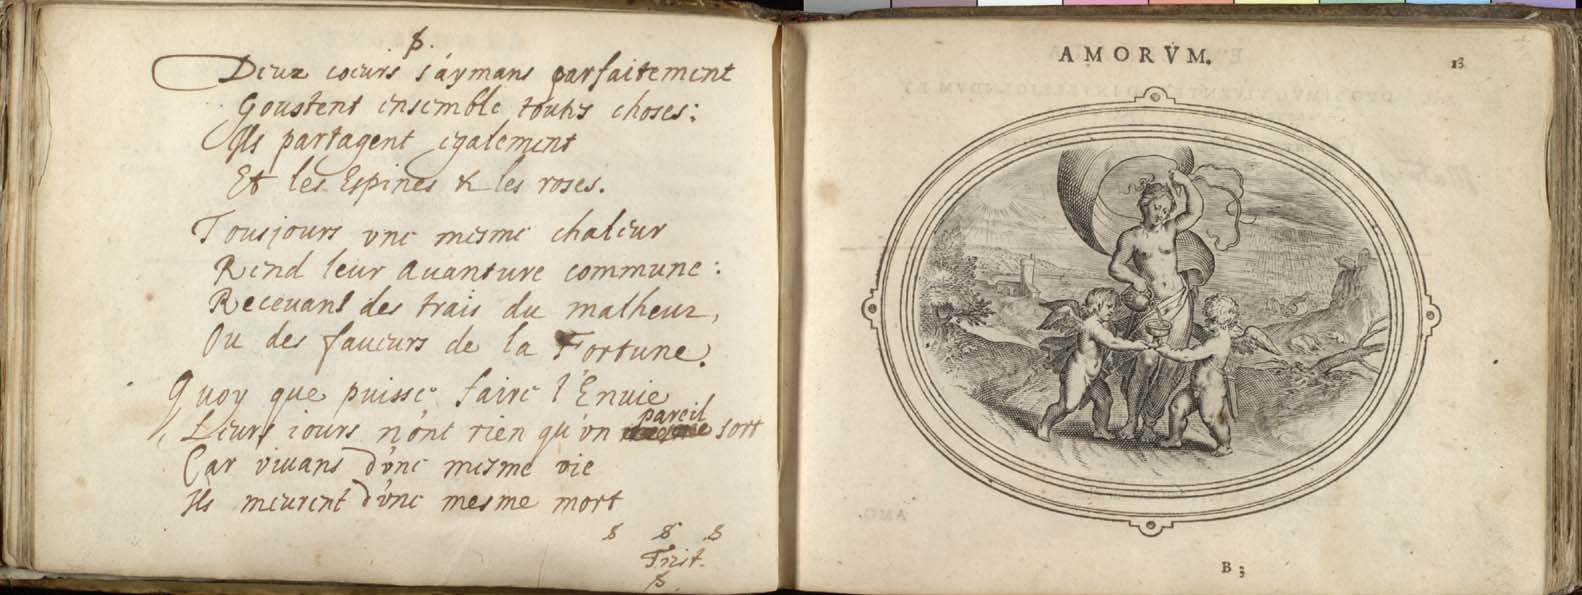 $.
Deux coeurs s'aymans parfaitement
Goustent ensemble toutes choses:
Ils partagent egalement
Et les Espines & les roses.
Tousjours vne mesme chaleur
Rend leur auanture commune:
Receuant des trais du malheur,
Ou des faueurs de la Fortune.
Quoy que puisse faire l'Enuie
Leurs iours n'ont rien qu'vn pareil sort
Car viuans d'vne mesme vie
Ils meurent d'vne mesme mort
$ $ $
Trist.
$
AMORVM.
13
B 3